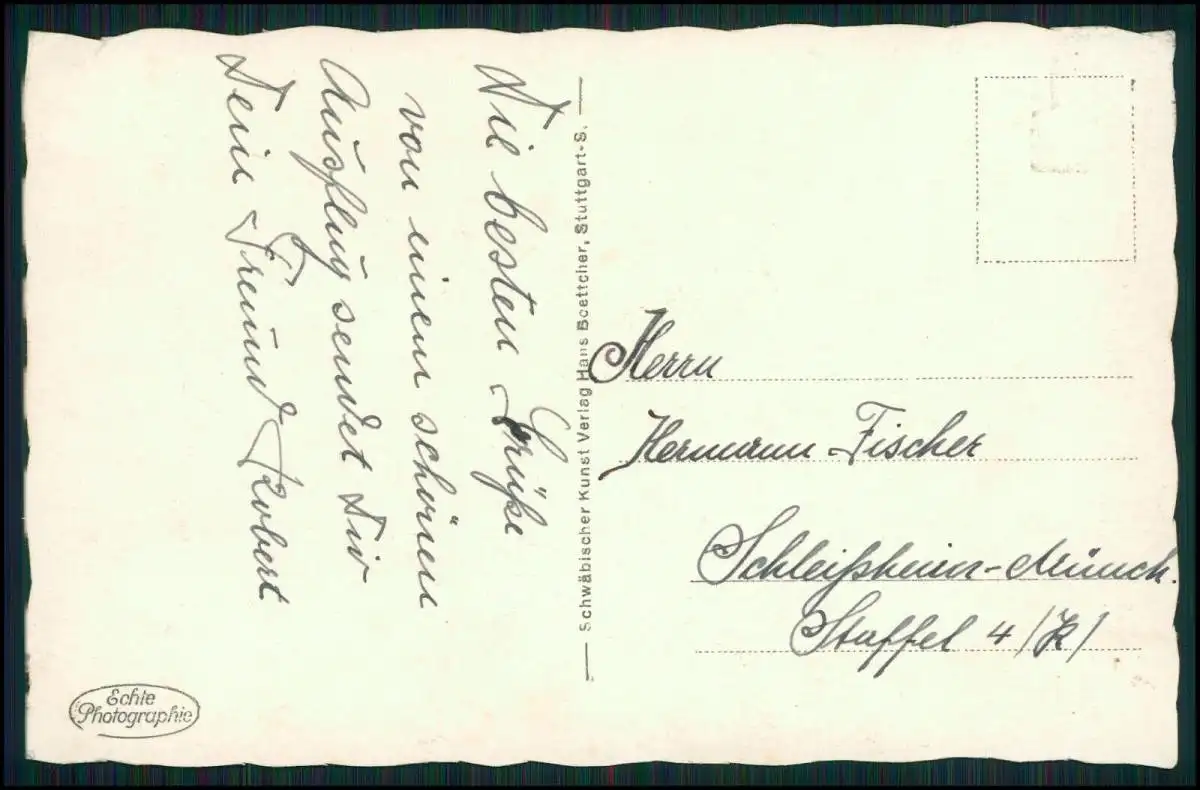 Die besten Grüße
von einem schönen
Ausflug sendet Dir
Dein Freund Robert
Schwäbischer Kunst Verlag Hans Boettcher, Stuttgart-S.
Herrn
Hermann Fischer
Schleißheim-Münch.
Staffel 4/K/
Echte
Photographie